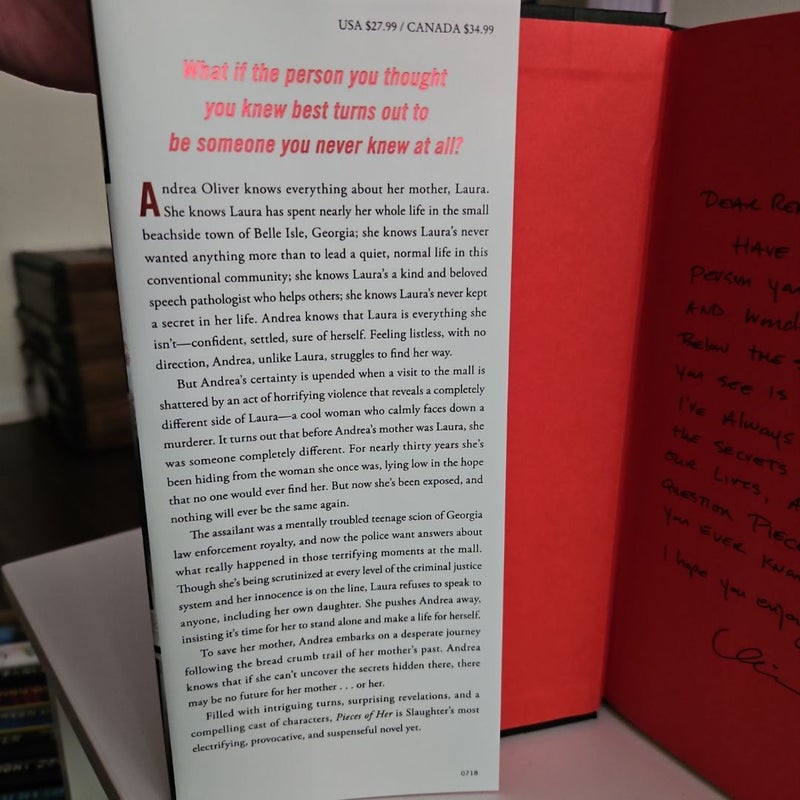 USA $27.99 / CANADA $34.99
What if the person you thought
you knew best turns out to
be someone you never knew at all?
Andrea Oliver knows everything about her mother, Laura.
She knows Laura has spent nearly her whole life in the small
beachside town of Belle Isle, Georgia; she knows Laura's never
wanted anything more than to lead a quiet, normal life in this
conventional community; she knows Laura's a kind and beloved
speech pathologist who helps others; she knows Laura's never kept
a secret in her life. Andrea knows that Laura is everything she
isn't—confident, settled, sure of herself. Feeling listless, with no
direction, Andrea, unlike Laura, struggles to find her way.
But Andrea's certainty is upended when a visit to the mall is
shattered by an act of horrifying violence that reveals a completely
different side of Laura—a cool woman who calmly faces down a
murderer. It turns out that before Andrea's mother was Laura, she
was someone completely different. For nearly thirty years she's
been hiding from the woman she once was, lying low in the hope
that no one would ever find her. But now she's been exposed, and
nothing will ever be the same again.
The assailant was a mentally troubled teenage scion of Georgia
law enforcement royalty, and now the police want answers about
what really happened in those terrifying moments at the mall.
Though she's being scrutinized at every level of the criminal justice
system and her innocence is on the line, Laura refuses to speak to
anyone, including her own daughter. She pushes Andrea away,
insisting it's time for her to stand alone and make a life for herself.
To save her mother, Andrea embarks on a desperate journey
following the bread crumb trail of her mother's past. Andrea
knows that if she can't uncover the secrets hidden there, there
may be no future for her mother . . . or her.
Filled with intriguing turns, surprising revelations, and a
compelling cast of characters, Pieces of Her is Slaughter's most
electrifying, provocative, and suspenseful novel yet.
0718
DEAR
HAVE
PERSON
AND
BELOW THE
YOU SEE IS
I'VE ALWAYS
THE SECRETS
OUR LIVES,
QUESTION
YOU EVER
I hope you enjoy